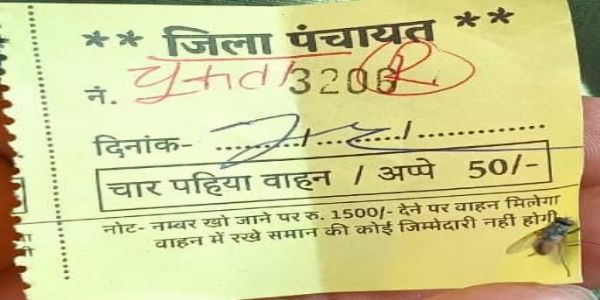 ** जिला पंचायत **
नं. चुकता 3206 R
दिनांक- ........./............/...............
चार पहिया वाहन / अप्पे 50/-
नोट- नम्बर खो जाने पर रु. 1500/- देने पर वाहन मिलेगा
वाहन में रखे समान की कोई जिम्मेदारी नहीं होगी